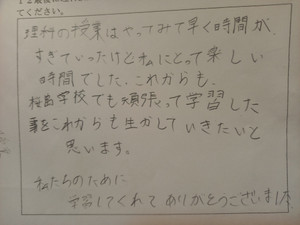 てください。
理科の授業はやってみて早く時間が、
すぎていったけど私にとって楽しい
時間でした。これからも、
桜島学校でも頑張って学習した
事をこれからも生かしていきたいと
思います。
私たちのために
してくれてありがとうございました